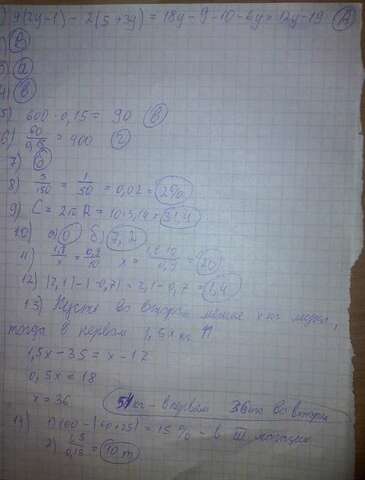 9(2y-1) - 2(5+3y) = 18y - 9 - 10 - 6y = 12y - 19 А
) В
3) а
4) в
5) 600 · 0,15 = 90 в
6) 60/0,15 = 400 г
7) б
8) 3/150 = 1/50 = 0,02 = 2%
9) C = 2πR = 10·3,14 = 31,4
10) а) 0 б) 7,2
11) 1,8/x = 0,9/10 x = 1,8·10/0,9 = 20
12) |2,1| - |-0,7| = 2,1 - 0,7 = 1,4
13) Пусть во втором мешке x кг
тогда в первом 1,5x кг
1,5x - 35 = x - 17
0,5x = 18
x = 36 54 кг - в первом 36 кг во втором
14) 1) 100 - (60+25) = 15% - в III
2) 1,5/0,15 = 10 т